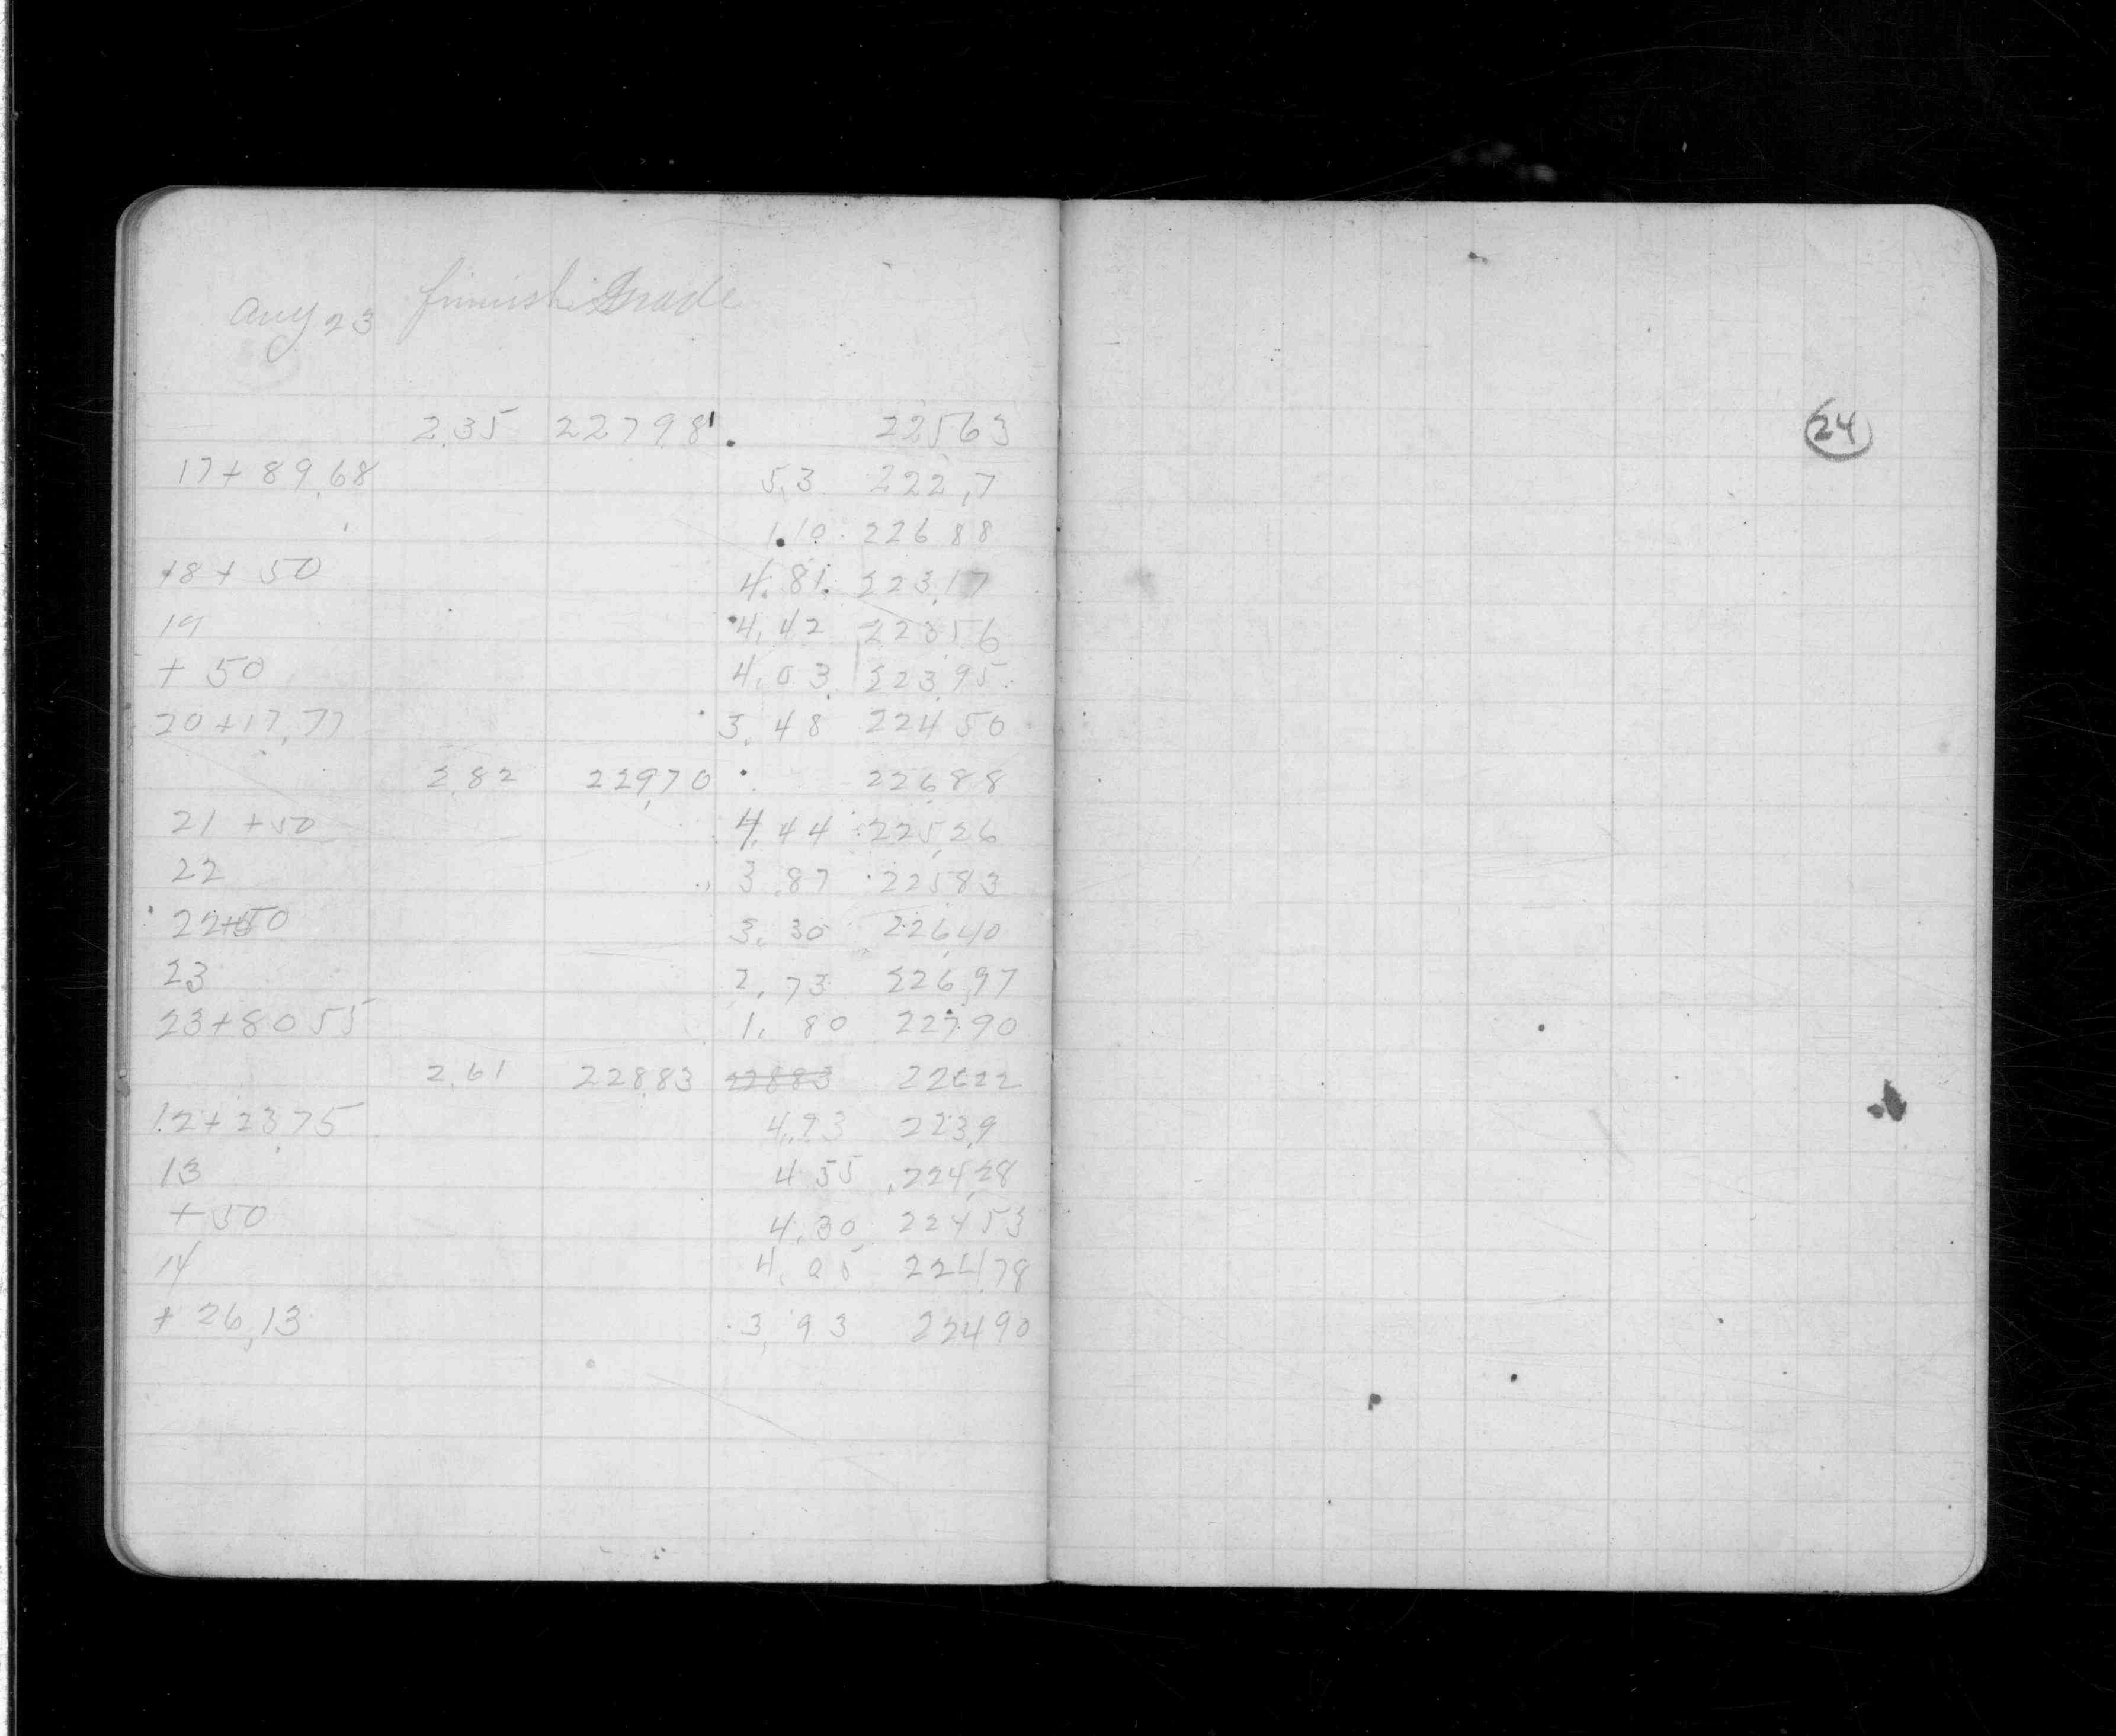 Aug 23 finnish Grade
2.35 22798 22563
17+89.68 5.3 222.7
1.10 22688
18+50 4.81 223.17
19 4.42 22356
+50 4.03 223.95
20+17.77 3.48 22450
2.82 229.70 226.88
21+50 4.44 225.26
22 3.87 22583
22+50 3.30 226.40
23 2.73 226.97
23+80 55 1.80 227.90
2.61 228.83 22883 22622
12+23.75 4.93 223.9
13 4 55 224.28
+50 4.30 22453
14 4.05 22478
+26.13 3.93 22490
24